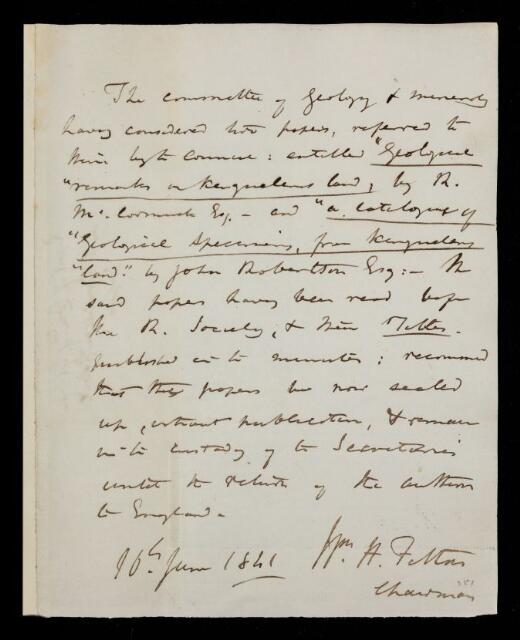 The committee of Geology & mineralogy
having considered two papers, referred to
them by the Council: entitled "Geological
"remarks on Kerguelens land, by R.
McCormick Esq. - and "a catalogue of
"Geological Specimens, from Kerguelens
"land." by John Robertson Esq: - the
said papers having been read before
the R. Society, & their Titles
published in the minutes; recommend
that these papers be now sealed
up, without publication, & remain
in the custody of the Secretaries
until the return of the authors
to England.
16th June 1841 Wm H. Fitton
Chairman